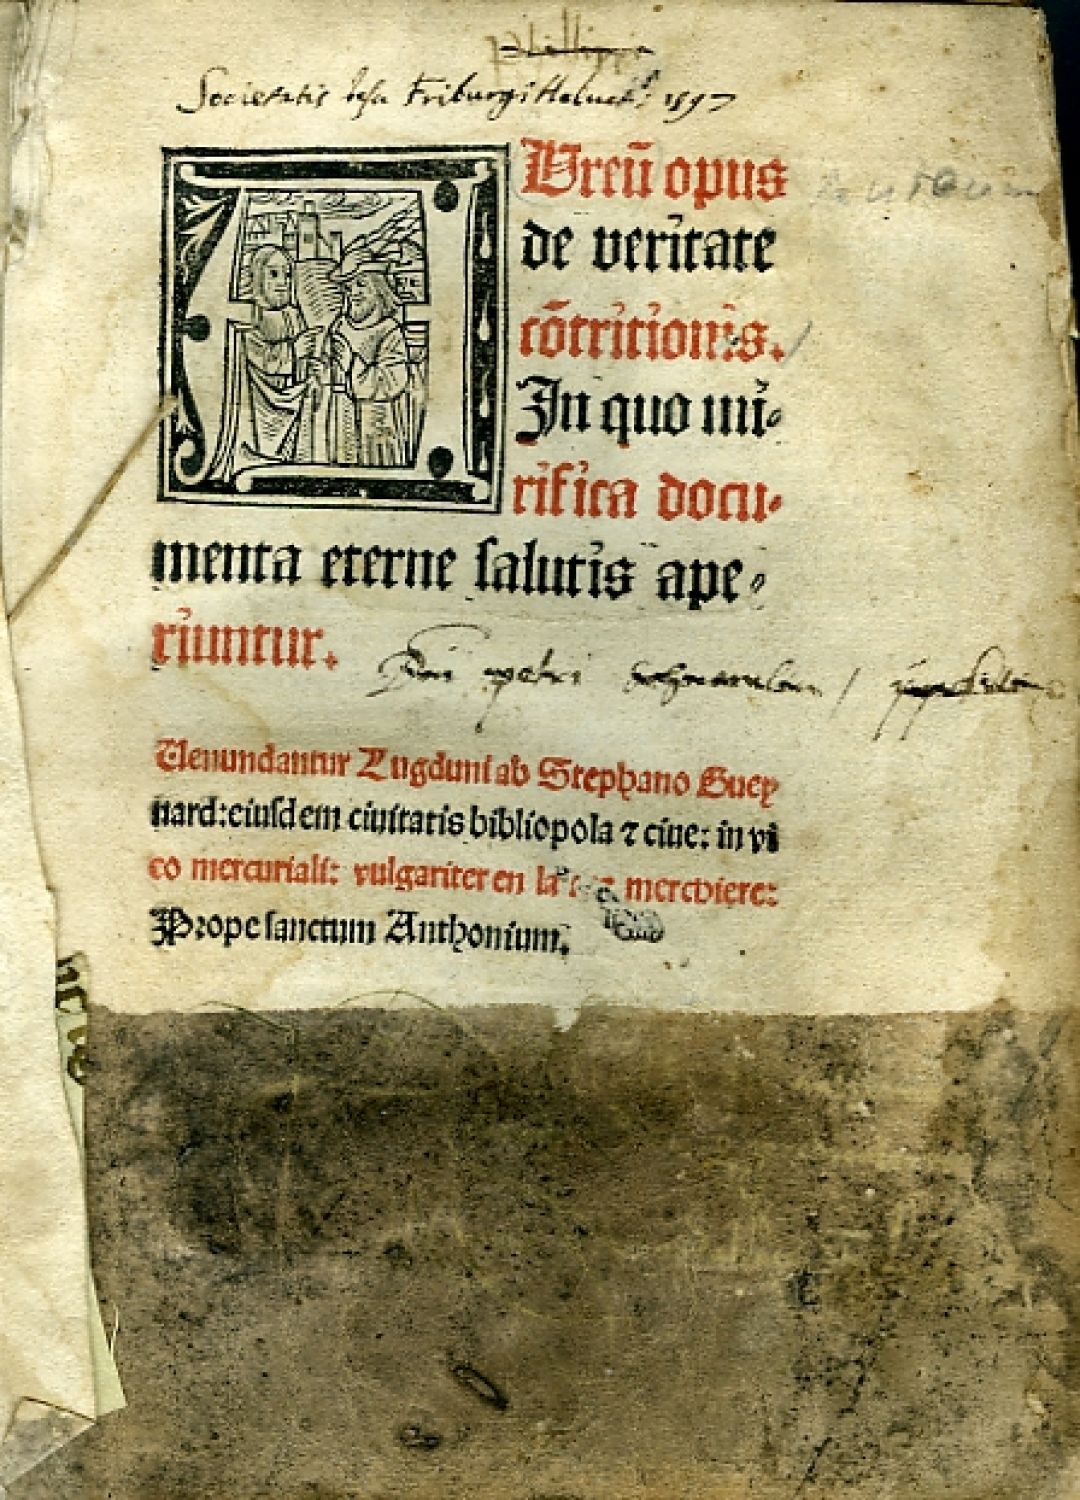 Societatis Jesu Friburgi Helvet: 1597
Aureū opus
de veritate
cōtritionis.
In quo mi-
rifica docu-
menta eterne salutis ape-
riuntur.
petri
Uenundantur Lugduni ab Stephano Guey
nard: eiusdem ciuitatis bibliopola ⁊ ciue: in vi
co mercuriali: vulgariter en la merciere:
Prope sanctum Anthonium.